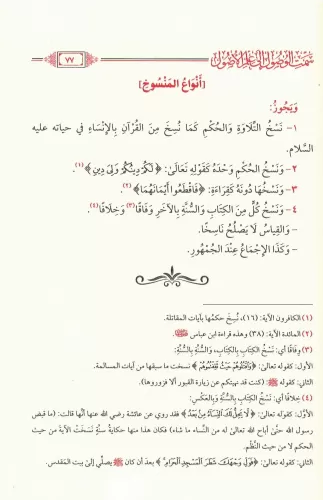 سَمْتُ الوُصُولِ إِلَى عِلْمِ الأُصُولِ
٧٧
[أَنْوَاعُ المَنْسُوخِ]
وَيَجُوزُ:
١- نَسْخُ التِّلَاوَةِ وَالحُكْمِ كَمَا نُسِخَ مِنَ القُرْآنِ بِالإِنْسَاءِ فِي حياته عليه
السَّلام.
٢- وَنَسْخُ الحُكْمِ وَحْدَهُ كَقَوْلِهِ تَعَالَىٰ: ﴿لَكُمْ دِينُكُمْ وَلِيَ دِينِ﴾(١).
٣- وَنَسْخُهَا دُونَهُ كَقِرَاءَةِ: ﴿فَاقْطَعُوا أَيْمَانَهُمَا﴾(٢).
٤- وَنَسْخُ كُلٍّ مِنَ الكِتَابِ وَالسُّنَّةِ بِالآخَرِ وَفَاقًا(٣) وَخِلَافًا(٤).
- وَالقِيَاسُ لَا يَصْلُحُ نَاسِخًا.
- وَكَذَا الإِجْمَاعُ عِنْدَ الجُمْهُورِ.
(١) الكافرون الآية: (١٦)، نُسِخَ حكمُها بآيات المقاتلة.
(٢) المائدة الآية: (٣٨) وهذه قراءة ابن عباس ﷺ.
(٣) وِفَاقًا أي: نَسْخُ الكِتَابِ بِالكِتَابِ، وَالسُّنَّةِ بِالسُّنَّةِ:
الأول: كقوله تعالىٰ: ﴿وَاقْتُلُوهُمْ حَيْثُ ثَقِفْتُمُوهُمْ﴾ نسخت ما سبقها من آيات المسالمة.
الثاني: كقوله ﷺ: (كنت قد نهيتكم عن زيارة القبور ألا فزوروها).
(٤) خِلَافًا أي: نَسْخُ الكِتَابِ بِالسُّنَّةِ وَبِالعَكْسِ:
الأوَّل: كقوله تعالىٰ: ﴿لَا يَحِلُّ لَكَ النِّسَاءُ مِنْ بَعْدُ﴾ فقد روي عن عائشة رضي الله عنها أنَّها قالت: (ما قبض
رسول الله حتَّىٰ أباح الله تعالىٰ له من النِّساء ما شاء) فكان هذا منها حكايةُ سنَّةٍ نَسَخَتْ الآية من حيث
الحكم لا من حيث النَّظْم.
الثاني: كقوله تعالىٰ: ﴿فَوَلِّ وَجْهَكَ شَطْرَ الْمَسْجِدِ الْحَرَامِ﴾ بعدَ أن كان ﷺ يصلِّي إلىٰ بيت المقدس.